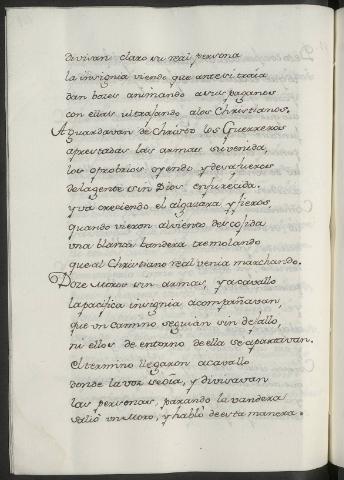 divisan claro su real persona
la insignia viendo que ante si traía
dan bozes animando a sus paganos
con ellas ultrajando a los Christianos.
Aguardavan de Christo los Guerreros
aprestadas las armas su venida,
los oprobrios oyendo y desafueros
de la gente sin Dios enfurecida.
y va creciendo el algazara y fieros,
quando vieron al viento descojida
una blanca bandera tremolando
que al Christiano real venia marchando.
Doze Moros sin armas, y a cavallo
la pacifica insignia acompañavan,
que un camino seguian sin dejallo,
ni ellos de entorno de ella se apartavan.
el termino llegaron a cavallo
donde la voz se oía, y divisavan
las personas, parando la vandera
salió un Moro, y habló de esta manera.